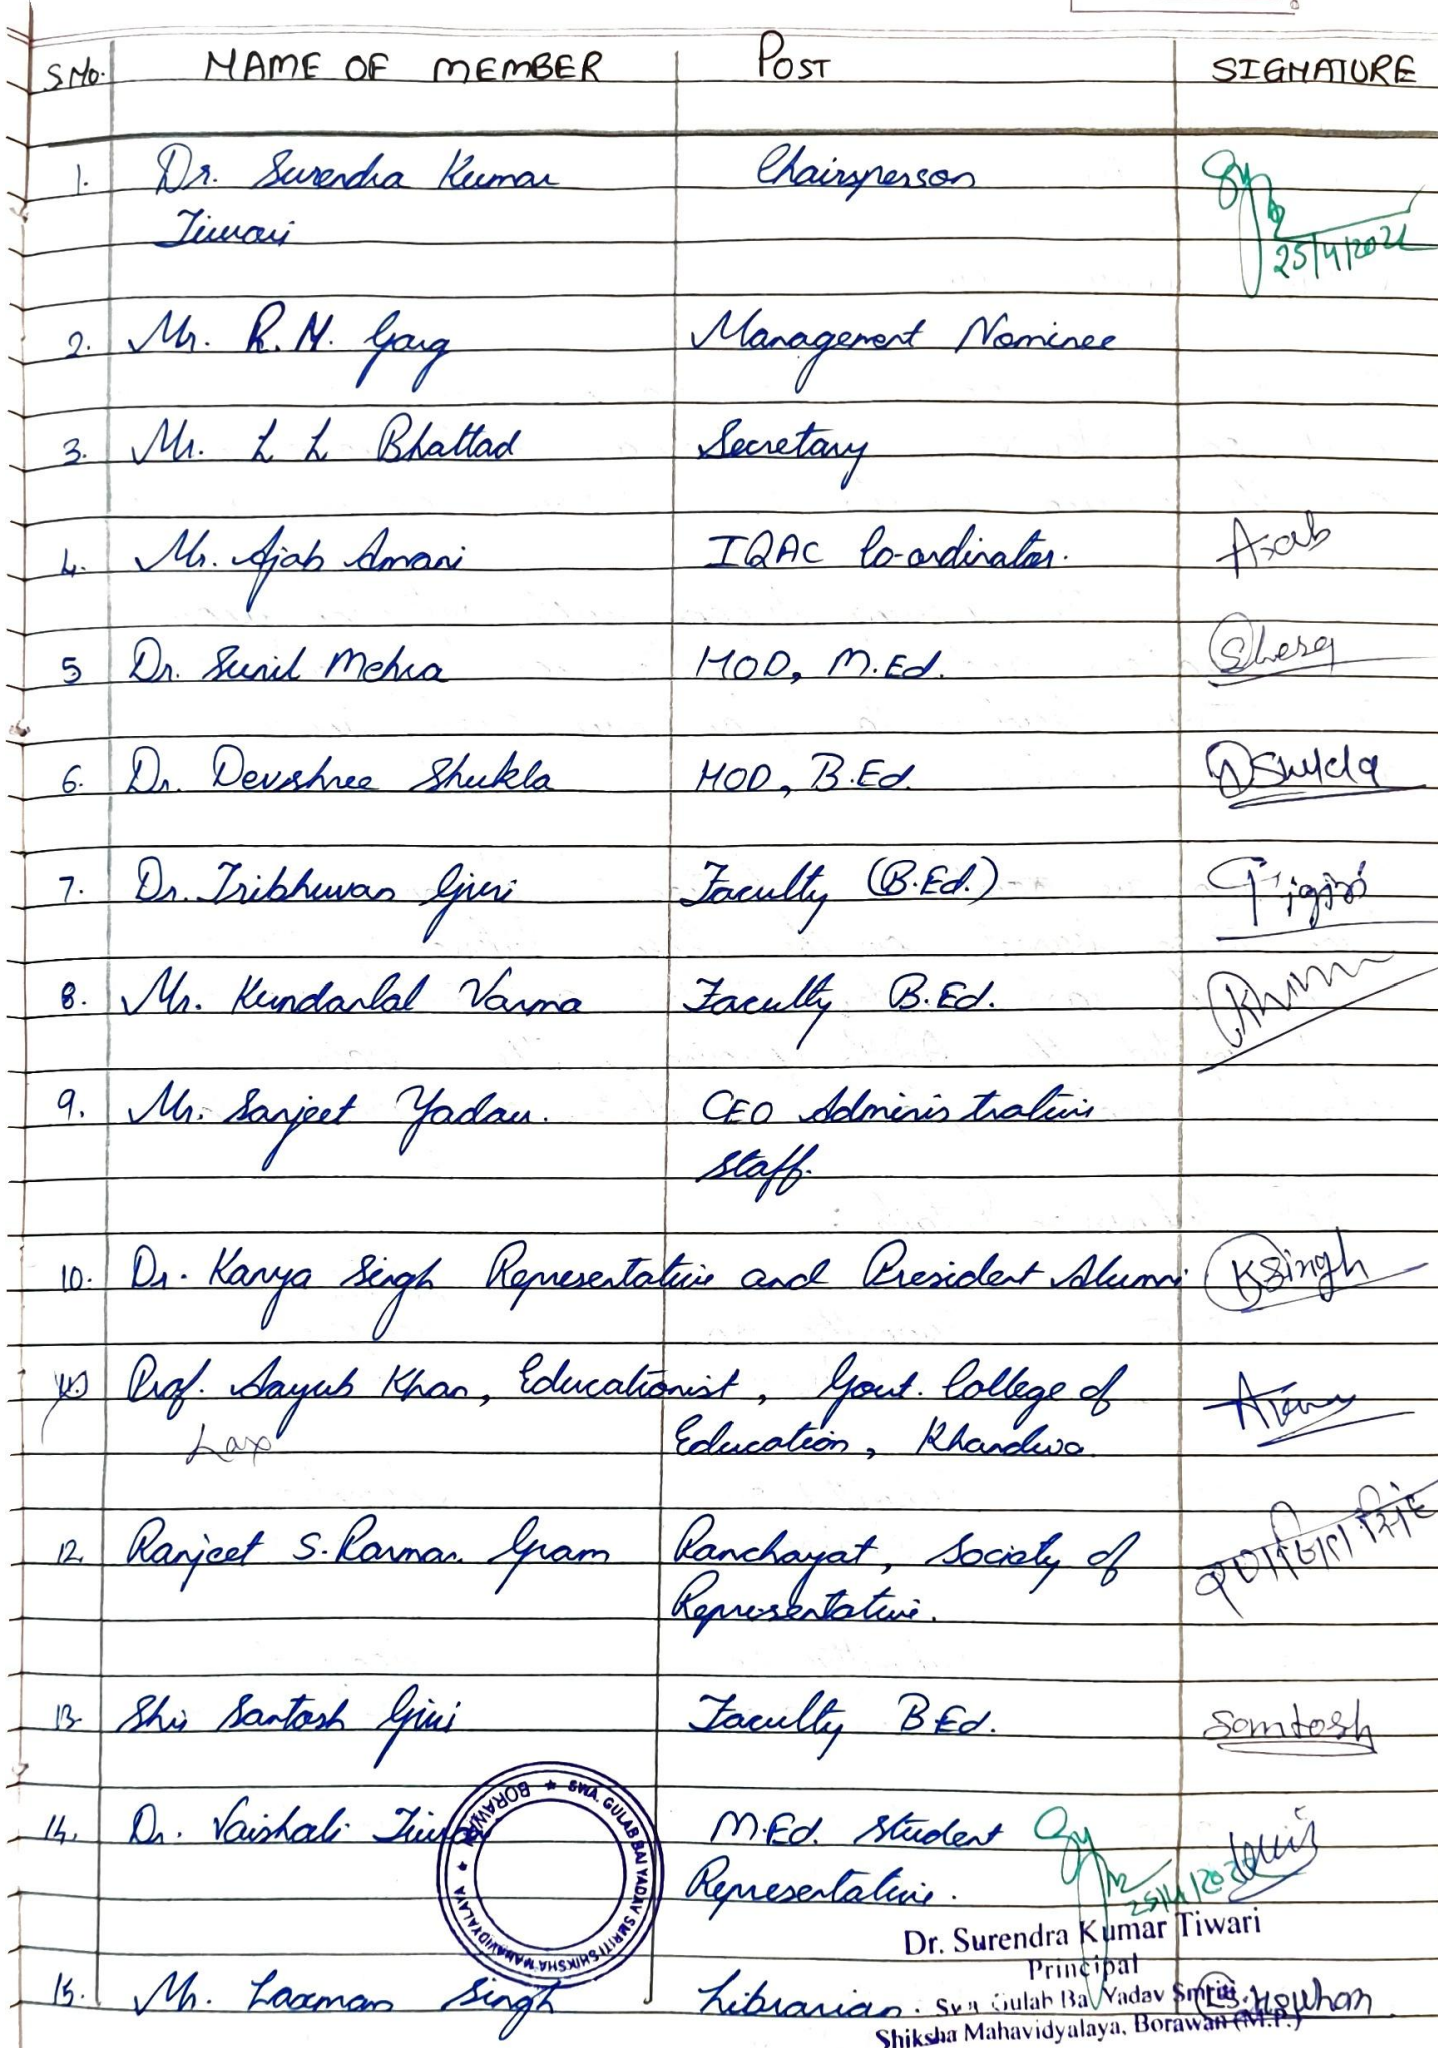 S.No. NAME OF MEMBER POST SIGNATURE
1. Dr. Surendra Kumar Chairsperson
Tiwari 25/4/2022
2. Mr. R.N. Garg Management Nominee
3. Mr. L L Bhattad Secretary
4. Mr. Ajab Amani IQAC Co-ordinator.
5 Dr. Sunil Mehra HOD, M.Ed.
6. Dr. Devshree Shukla HOD, B.Ed. DShukla
7. Dr. Tribhuwan Giri Faculty (B.Ed.)
8. Mr. Kundanlal Varma Faculty B.Ed.
9. Mr. Sanjeet Yadav. CEO Administrative
Staff.
10. Dr. Kavya Singh Representative and President Alumni KSingh
11. Prof. Aayub Khan, Educationist, Govt. College of
Lax Education, Khandwa.
12. Ranjeet S. Parmar. Gram Panchayat, Society of
Representative.
13. Shri Santosh Giri Faculty B Ed. Somtosh
14. Dr. Vaishali Tiwari M.Ed. Student
Representative. 25/4/2022
SWA. GULAB BAI YADAV SMRITI SHIKSHA MAHAVIDYALAYA ★ BORAWAN ★
Dr. Surendra Kumar Tiwari
Principal
15. Mr. Laxman Singh Librarian. Swa Gulab Bai Yadav Smriti
Shiksha Mahavidyalaya, Borawan (M.P.)